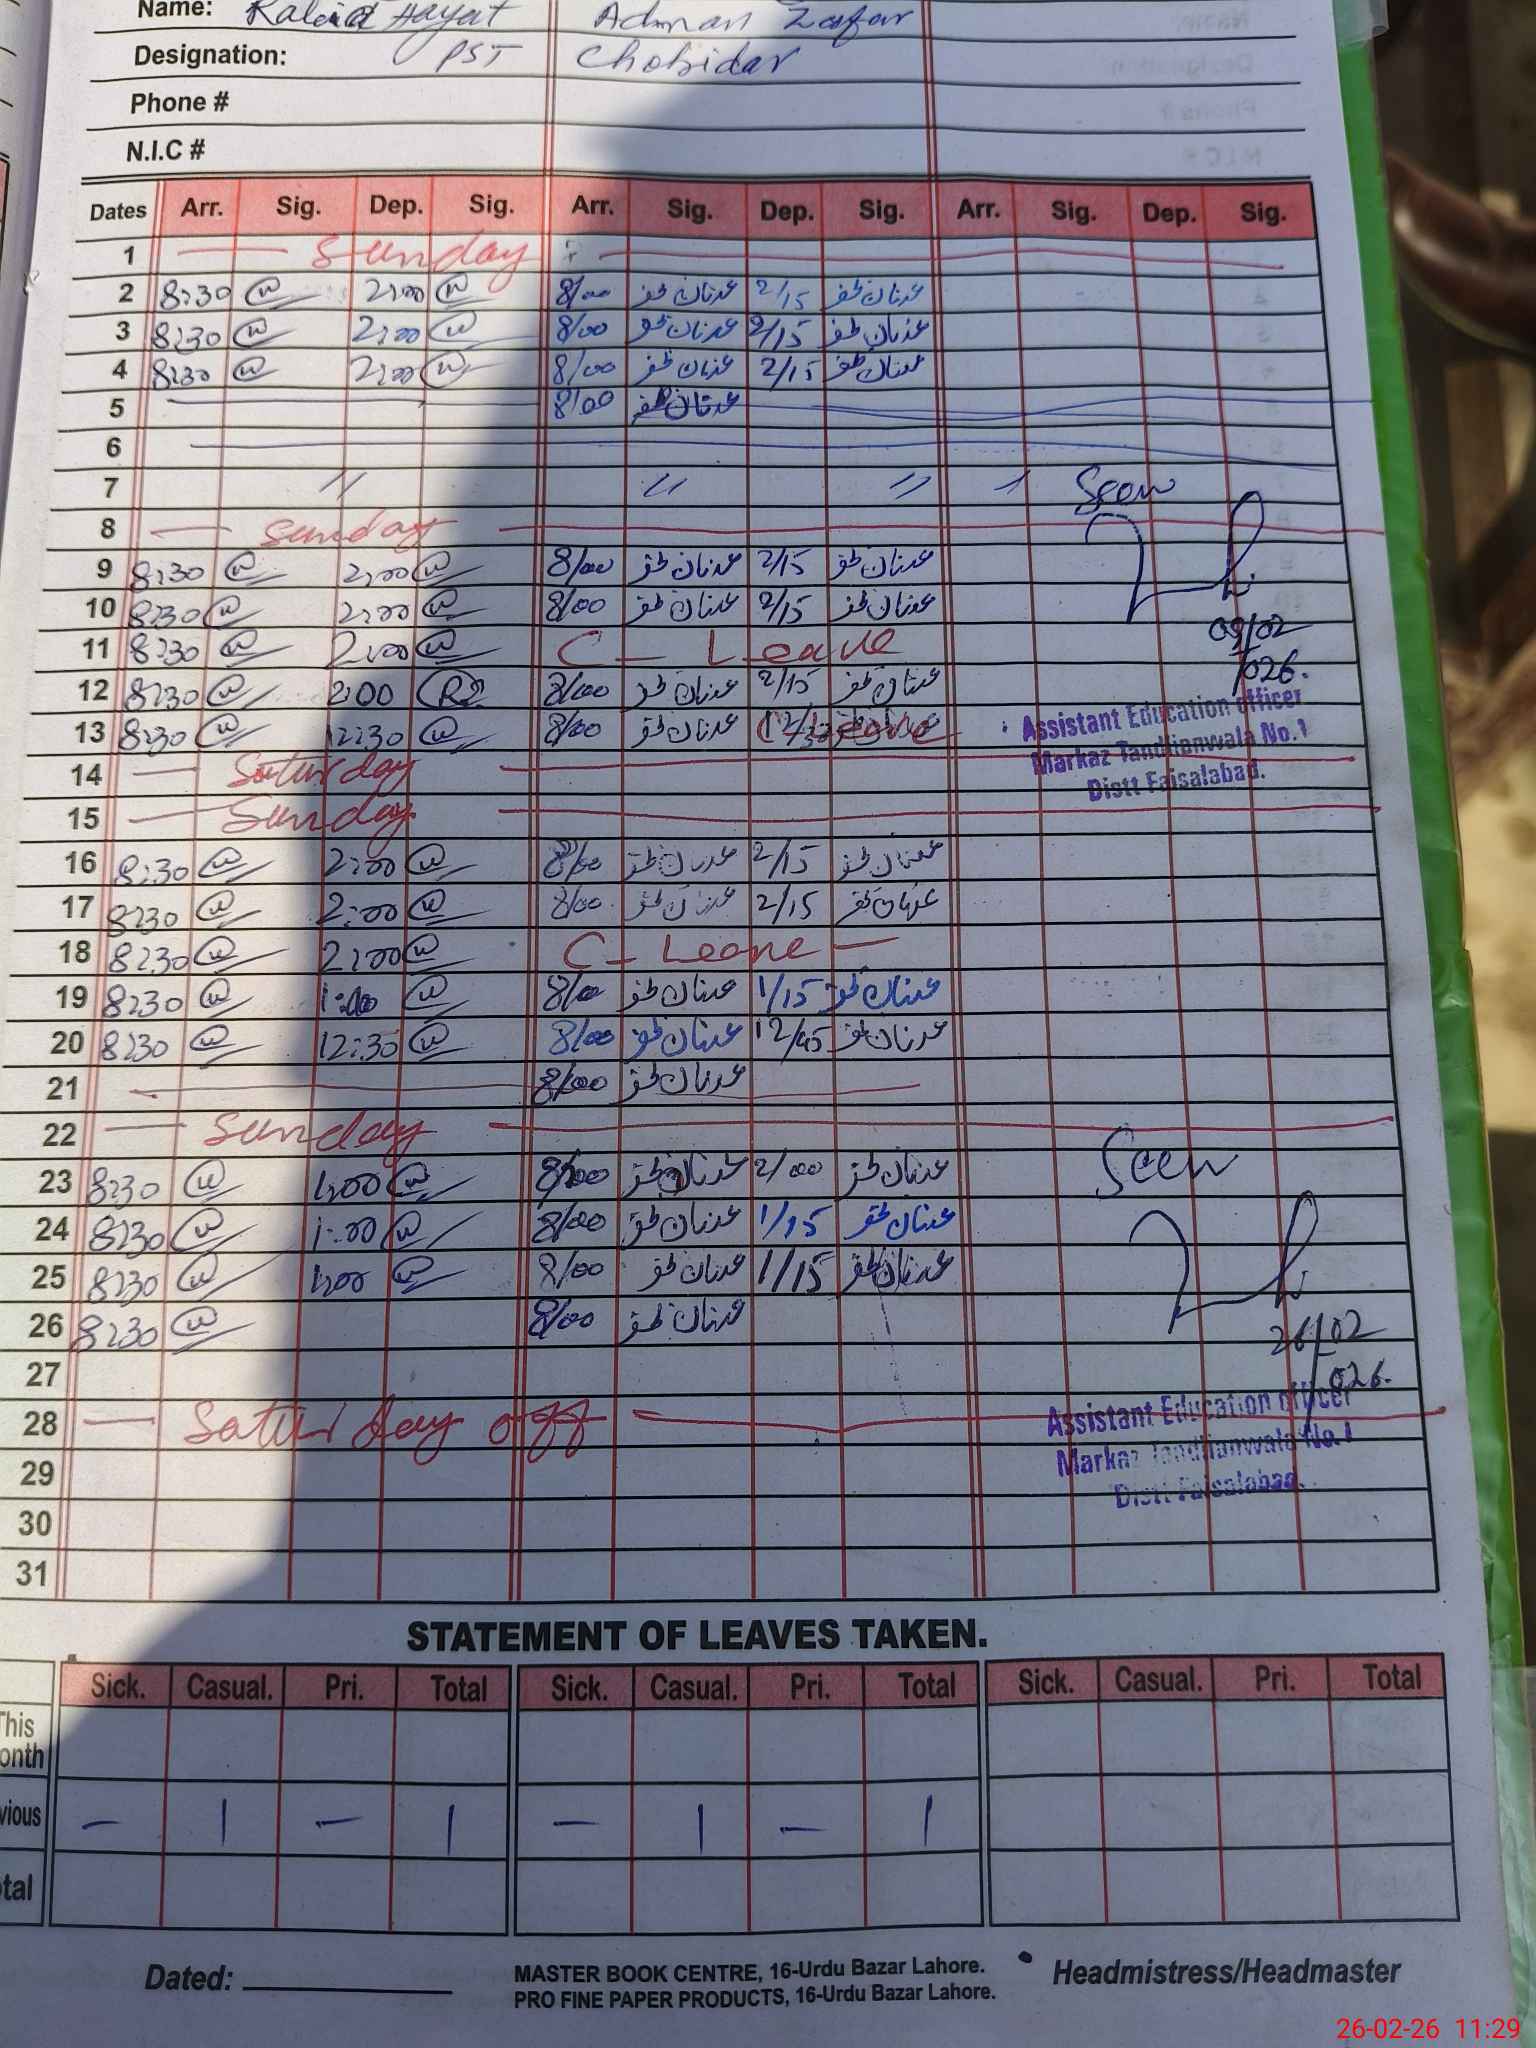 Name: Hayat Adnan Zafar
Designation: PST Chokidar
Phone #
N.I.C #
Dates Arr. Sig. Dep. Sig. Arr. Sig. Dep. Sig. Arr. Sig. Dep. Sig.
1 Sunday
2 8:30 2:00 8/00 عدنان ظفر 2/15 عدنان ظفر
3 8:30 2:00 8/00 عدنان ظفر 2/15 عدنان ظفر
4 8:30 2:00 8/00 عدنان ظفر 2/15 عدنان ظفر
5 8/00 عدنان ظفر
6
7 〃 〃 〃 Seen
8 Sunday
9 8:30 2:00 8/00 عدنان ظفر 2/15 عدنان ظفر
10 8:30 2:00 8/00 عدنان ظفر 2/15 عدنان ظفر
11 8:30 2:00 C - Leave 09/02
12 8:30 2:00 8/00 عدنان ظفر 2/15 عدنان ظفر /026.
13 8:30 12:30 8/00 عدنان ظفر
Assistant Education officer
Markaz Tandlianwala No.1
Distt Faisalabad.
14 Saturday
15 Sunday
16 8:30 2:00 8/00 عدنان ظفر 2/15 عدنان ظفر
17 8:30 2:00 8/00 عدنان ظفر 2/15 عدنان ظفر
18 8:30 2:00 C - Leave
19 8:30 1:00 8/00 عدنان ظفر 1/15 عدنان ظفر
20 8:30 12:30 8/00 عدنان ظفر 12/45 عدنان ظفر
21 8/00 عدنان ظفر
22 Sunday
23 8:30 1:00 8/00 عدنان ظفر 2/00 عدنان ظفر Seen
24 8:30 1:00 8/00 عدنان ظفر 1/15 عدنان ظفر
25 8:30 1:00 8/00 عدنان ظفر 1/15 عدنان ظفر
26 8:30 8/00 عدنان ظفر 26/02
27 /026.
28 Saturday off
Assistant Education officer
Markaz Tandlianwala No.1
Distt Faisalabad.
29
30
31
STATEMENT OF LEAVES TAKEN.
Sick. Casual. Pri. Total Sick. Casual. Pri. Total Sick. Casual. Pri. Total
This
onth
vious - 1 - 1 - 1 - 1
otal
Dated: MASTER BOOK CENTRE, 16-Urdu Bazar Lahore. Headmistress/Headmaster
PRO FINE PAPER PRODUCTS, 16-Urdu Bazar Lahore.
26-02-26 11:29